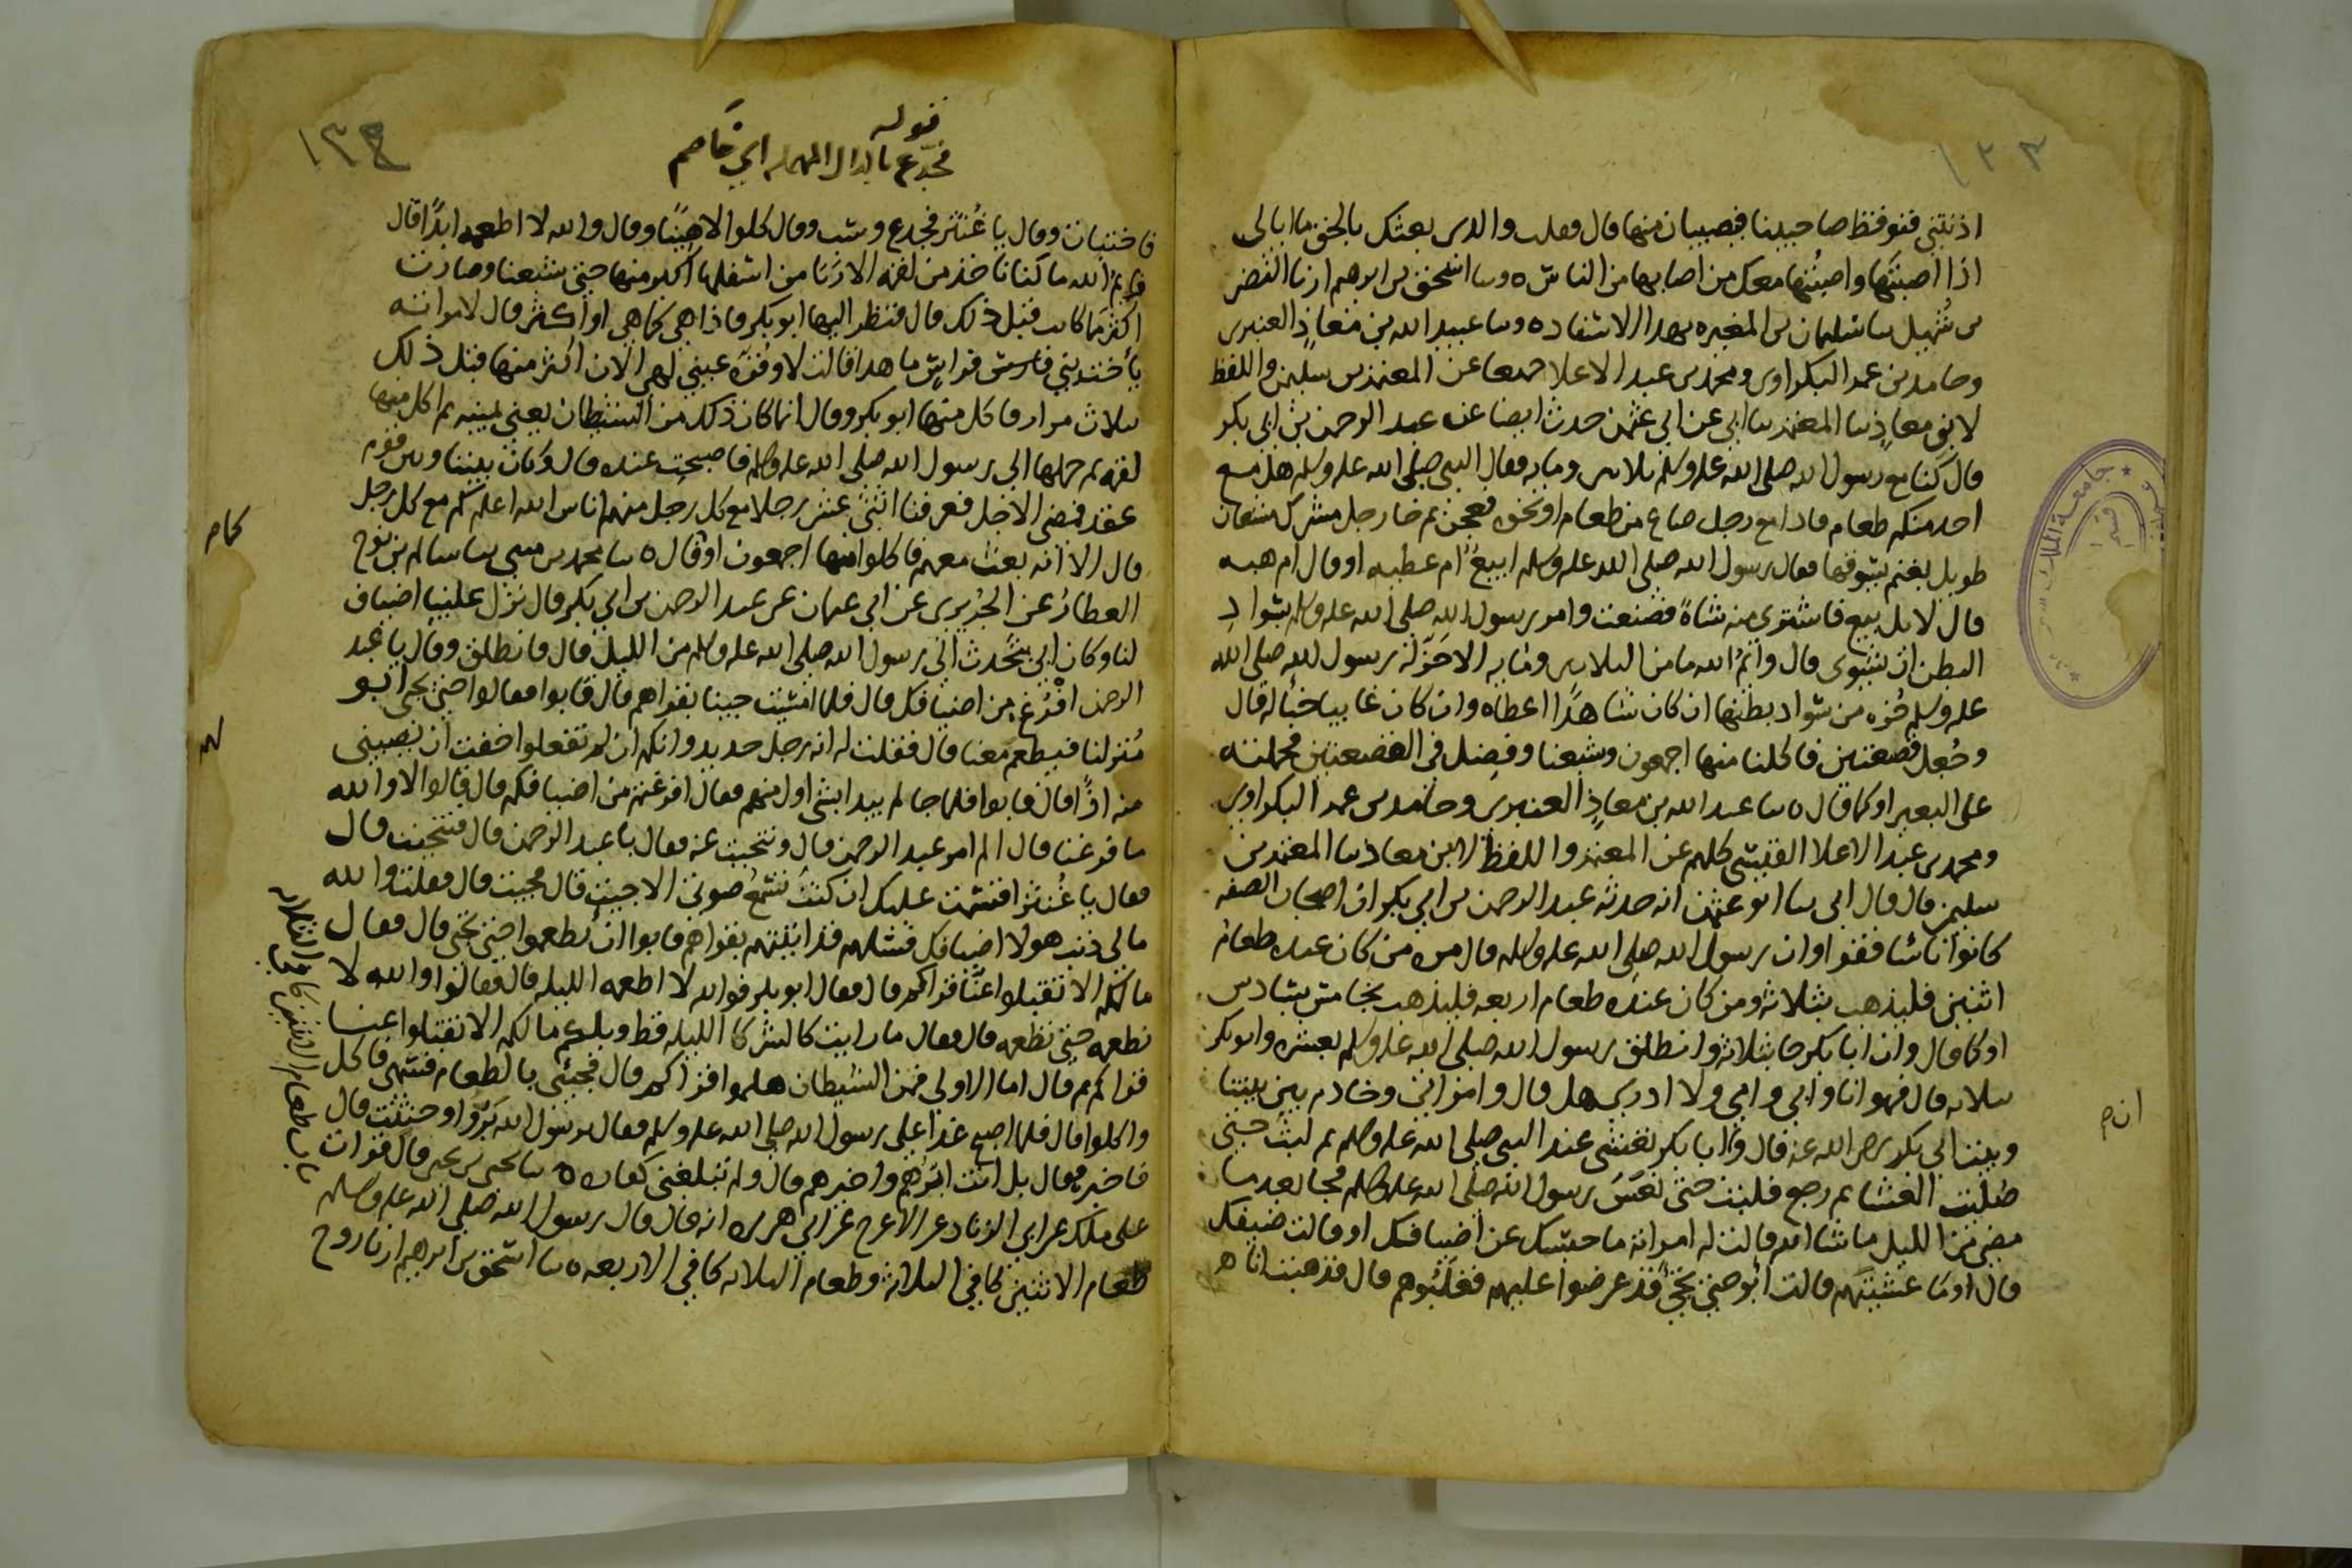 ١٣٣
اذنتني فنوقظ صاحبينا فيصيبان منها قال فقلت والذي بعثك بالحق ما ابالي
اذا اصبتَها واصبتُها معك من اصابها من الناس ه وسا اسحق بن ابرهيم ارنا النضر
بن شُمَيل سا سليمان بن المغيره بهذا الاسناد ه وسا عبيد الله بن معاذٍ العنبري
وحامد بن عمر البكراوي ومحمد بن عبد الاعلا جميعا عن المعتمر بن سليمن واللفظ
لابن معاذٍ سا المعتمر سا ابي عن ابي عثمن حدث ايضا عن عبد الرحمن بن ابي بكر
قال كنا مع رسول الله صلى الله عليه وسلم ثلاثين ومايه فقال النبي صلى الله عليه وسلم هل مع
احد منكم طعام فاذا مع رجل صاع من طعام او نحوه فعجن ثم جا رجل مشرك مشعان
طويل بغنم يسوقها فقال رسول الله صلى الله عليه وسلم ابيعٌ ام عطيه او قال ام هبه
قال لا بل بيع فاشترى منه شاةً فصنعت وامر رسول الله صلى الله عليه وسلم بسوادِ
البطن ان يشوى قال وايمُ الله ما من الثلاثين ومايه الا حَزّ له رسول الله صلى الله
عليه وسلم حُزه من سواد بطنها ان كان شاهدًا اعطاه وان كان غايبا خبأ له قال
وجُعل قصعتين فاكلنا منها اجمعون وشبعنا وفضل في القصعتين فحملته
على البعير او كما قال ه سا عبد الله بن معاذٍ العنبري وحامد بن عمر البكراوي
ومحمد بن عبد الاعلا القيسي كلهم عن المعتمر واللفظ لابن معاذ سا المعتمر بن
سليمن قال قال ابي سا ابو عثمن انه حدثه عبد الرحمن بن ابي بكر ان اصحاب الصفه
كانوا ناسًا فقرا وان رسول الله صلى الله عليه وسلم قال مره من كان عنده طعام
اثنين فليذهب بثلاثه ومن كان عنده طعام اربعه فليذهب بخامس بسادس
او كما قال وان ابا بكر جا بثلاثه وانطلق رسول الله صلى الله عليه وسلم بعشره وابو بكر
بثلاثه قال فهو انا وابي وامي ولا ادري هل قال وامراتي وخادم بين بيتنا
وبيت ابي بكر رضي الله عنه قال وان ابا بكر تعشى عند النبي صلى الله عليه وسلم ثم لبث حتى
صليت العشا ثم رجع فلبث حتى نعَسَ رسول الله صلى الله عليه وسلم فجا بعد ما
مضى من الليل ما شا الله قالت له امراته ما حبسك عن اضيافك او قالت ضيفك
قال اوما عشيتِهم قالت ابوا حتى تجي قد عرضوا عليهم فغلبوهم قال فذهبت انا
ان م
١٣٤
قوله
فجدع بالدال المهمله اي خاصم
فاختبات وقال يا غُنثر فجدع وسب وقال كلوا لا هنيًا وقال والله لا اطعمه ابدًا قال
وايمُ الله ما كنا ناخذ من لقمه الا ربَا من اسفلها اكثر منها حتى شبعنا وصارت
اكثر مما كانت قبل ذلك قال فنظر اليها ابو بكر فاذا هي كما هي او اكثر قال لامراته
يأخت بني فراس ما هذا قالت لا وقُرّه عيني لهي الان اكثر منها قبل ذلك
بثلاث مرار فاكل منها ابو بكر وقال انما كان ذلك من الشيطان يعني يمينه ثم اكل منها
لقمه ثم حملها الى رسول الله صلى الله عليه وسلم فاصبحت عنده قال وكان بيننا وبين قوم
عقد فمضى الاجل فعرفنا اثنى عشر رجلا مع كل رجل منهم اناس الله اعلم كم مع كل رجل
قال الا انه بعث معهم فاكلوا منها اجمعون او كما قال ه سا محمد بن مثنى سا سالم بن نوح
العطارُ عن الجُريري عن ابي عثمان عن عبد الرحمن بن ابي بكر قال نزل علينا اضياف
لنا وكان ابي يتحدث الى رسول الله صلى الله عليه وسلم من الليل قال فانطلق وقال يا عبد
الرحمن افرُغ من اضيافك قال فلما امسيت جينا بقراهم قال فابوا فقالوا حتى يجي ابو
منزلنا فيطعم معنا قال فقلت له انه رجل حديد وانكم ان لم تفعلوا خفت ان يصيبني
منه اذًا قال فابوا فلما جا لم يبدا بشي اول منهم فقال افرغتم من اضيافكم قال قالوا لا والله
ما فرغنا قال الم امر عبد الرحمن قال وتنحيت عنه فقال يا عبد الرحمن قال فتنحيت قال
فقال يا غُنثر اقسمت عليك ان كنتُ تسمعُ صوتي الا جيت قال فجيت قال فقلت والله
مالي ذنب هولا اضيافك فسلهم قد اتيتهم بقراهم فابوا ان يطعموا حتى تجي قال فقال
مالكم الا تقبلوا عنَّا قراكم قال فقال ابو بكر فوالله لا اطعمه الليله قال فقالوا والله لا
نطعمه حتى تطعمه قال فقال ما رايت كالشر كالليله قط ويلكم مالكم الا تقبلوا عنا
قراكم ثم قال اما الاولى فمن الشيطان هلموا قراكم قال فجيء بالطعام فسمى فاكل
واكلوا قال فلما اصبح غدا على رسول الله صلى الله عليه وسلم فقال يرسول الله بَرُّوا وحنثت قال
فاخبره فقال بل انت ابرهم واخيرهم قال ولم تبلغني كفاره ه سا يحيى بن يحيى قال قرات
على ملك عن ابي الزناد عن الاعرج عن ابي هريره انه قال قال رسول الله صلى الله عليه وسلم
طعام الاثنين كافي الثلاثه وطعام الثلاثه كافي الاربعه ه سا اسحق بن ابرهيم ارنا روح
باب طعام الاثنين كافي الثلاثه